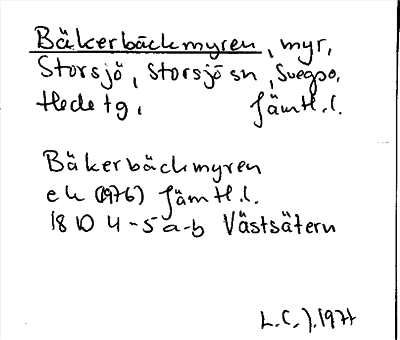 Bäkerbäckmyren, myr,
Storsjö, Storsjö sn, Svegso,
Hede tg, Jämtl. l.
Bäkerbäckmyren
ek (1976) Jämtl. l.
18 D 4-5 a-b Västsätern
L.C.J. 1977